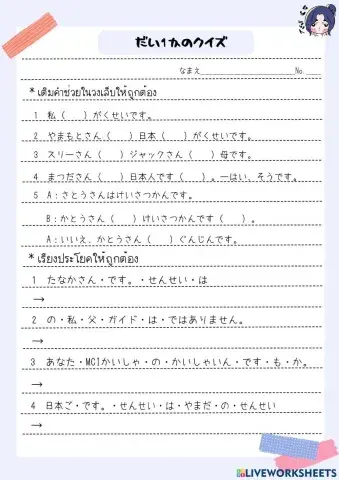 だい1かのクイズ
なまえ____________________No.____
* เติมคำช่วยในวงเล็บให้ถูกต้อง
1 私(　)がくせいです。
2 やまもとさん(　)日本(　)がくせいです。
3 スリーさん(　)ジャックさん(　)母です。
4 まつださん(　)日本人です(　)。―はい、そうです。
5 A:さとうさんはけいさつかんです。
B:かとうさん(　)けいさつかんです(　)。
A:いいえ、かとうさん(　)ぐんじんです。
* เรียงประโยคให้ถูกต้อง
1 たなかさん・です。・せんせい・は
→
2 の・私・父・ガイド・は・ではありません。
→
3 あなた・MC1かいしゃ・の・かいしゃいん・です・も・か。
→
4 日本ご・です。・せんせい・は・やまだ・の・せんせい
→
LIVEWORKSHEETS